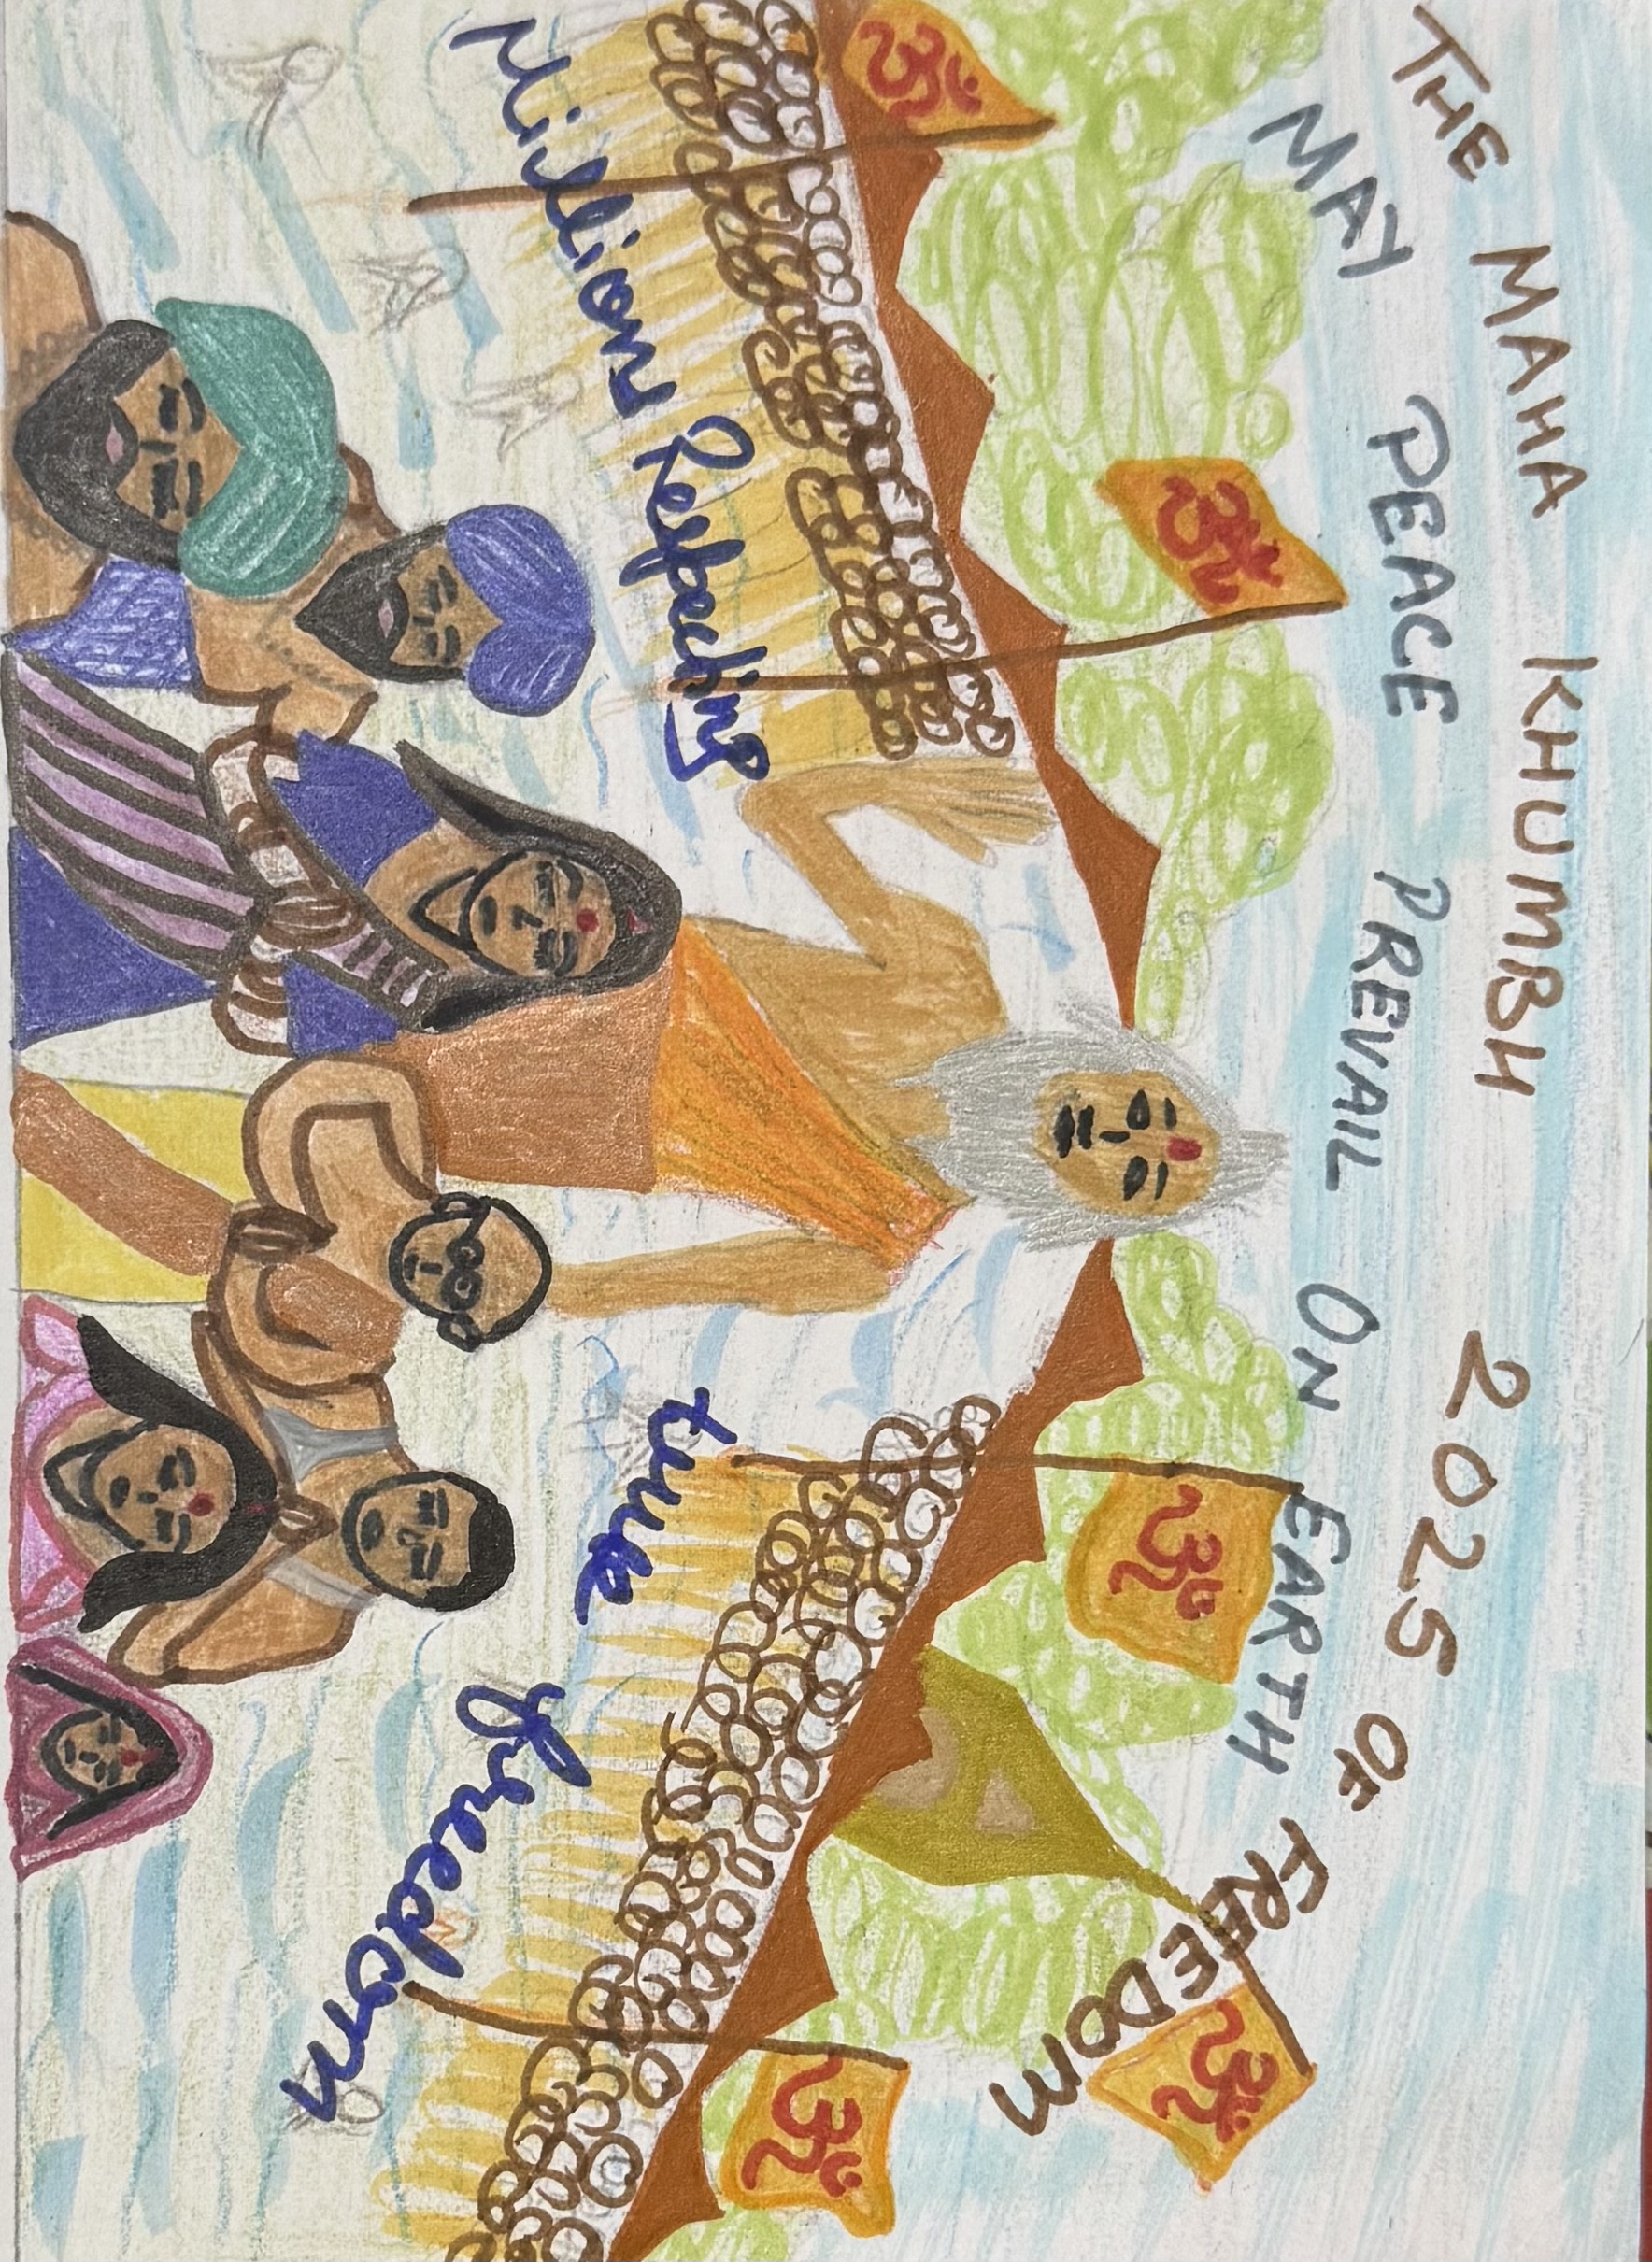 THE MAHA KHUMBH 2025 OF FREEDOM
MAY PEACE PREVAIL ON EARTH
ॐ
ॐ
ॐ
ॐ
ॐ
Millions Respecting true freedom